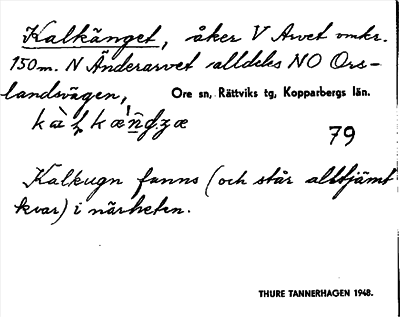 Kalkänget, åker V Arvet omkr.
150 m. N Änderarvet alldeles NO Ors-
landsvägen, Ore sn, Rättviks tg, Kopparbergs län.
79
Kalkugn fanns (och står alltjämt
kvar) i närheten.
THURE TANNERHAGEN 1948.